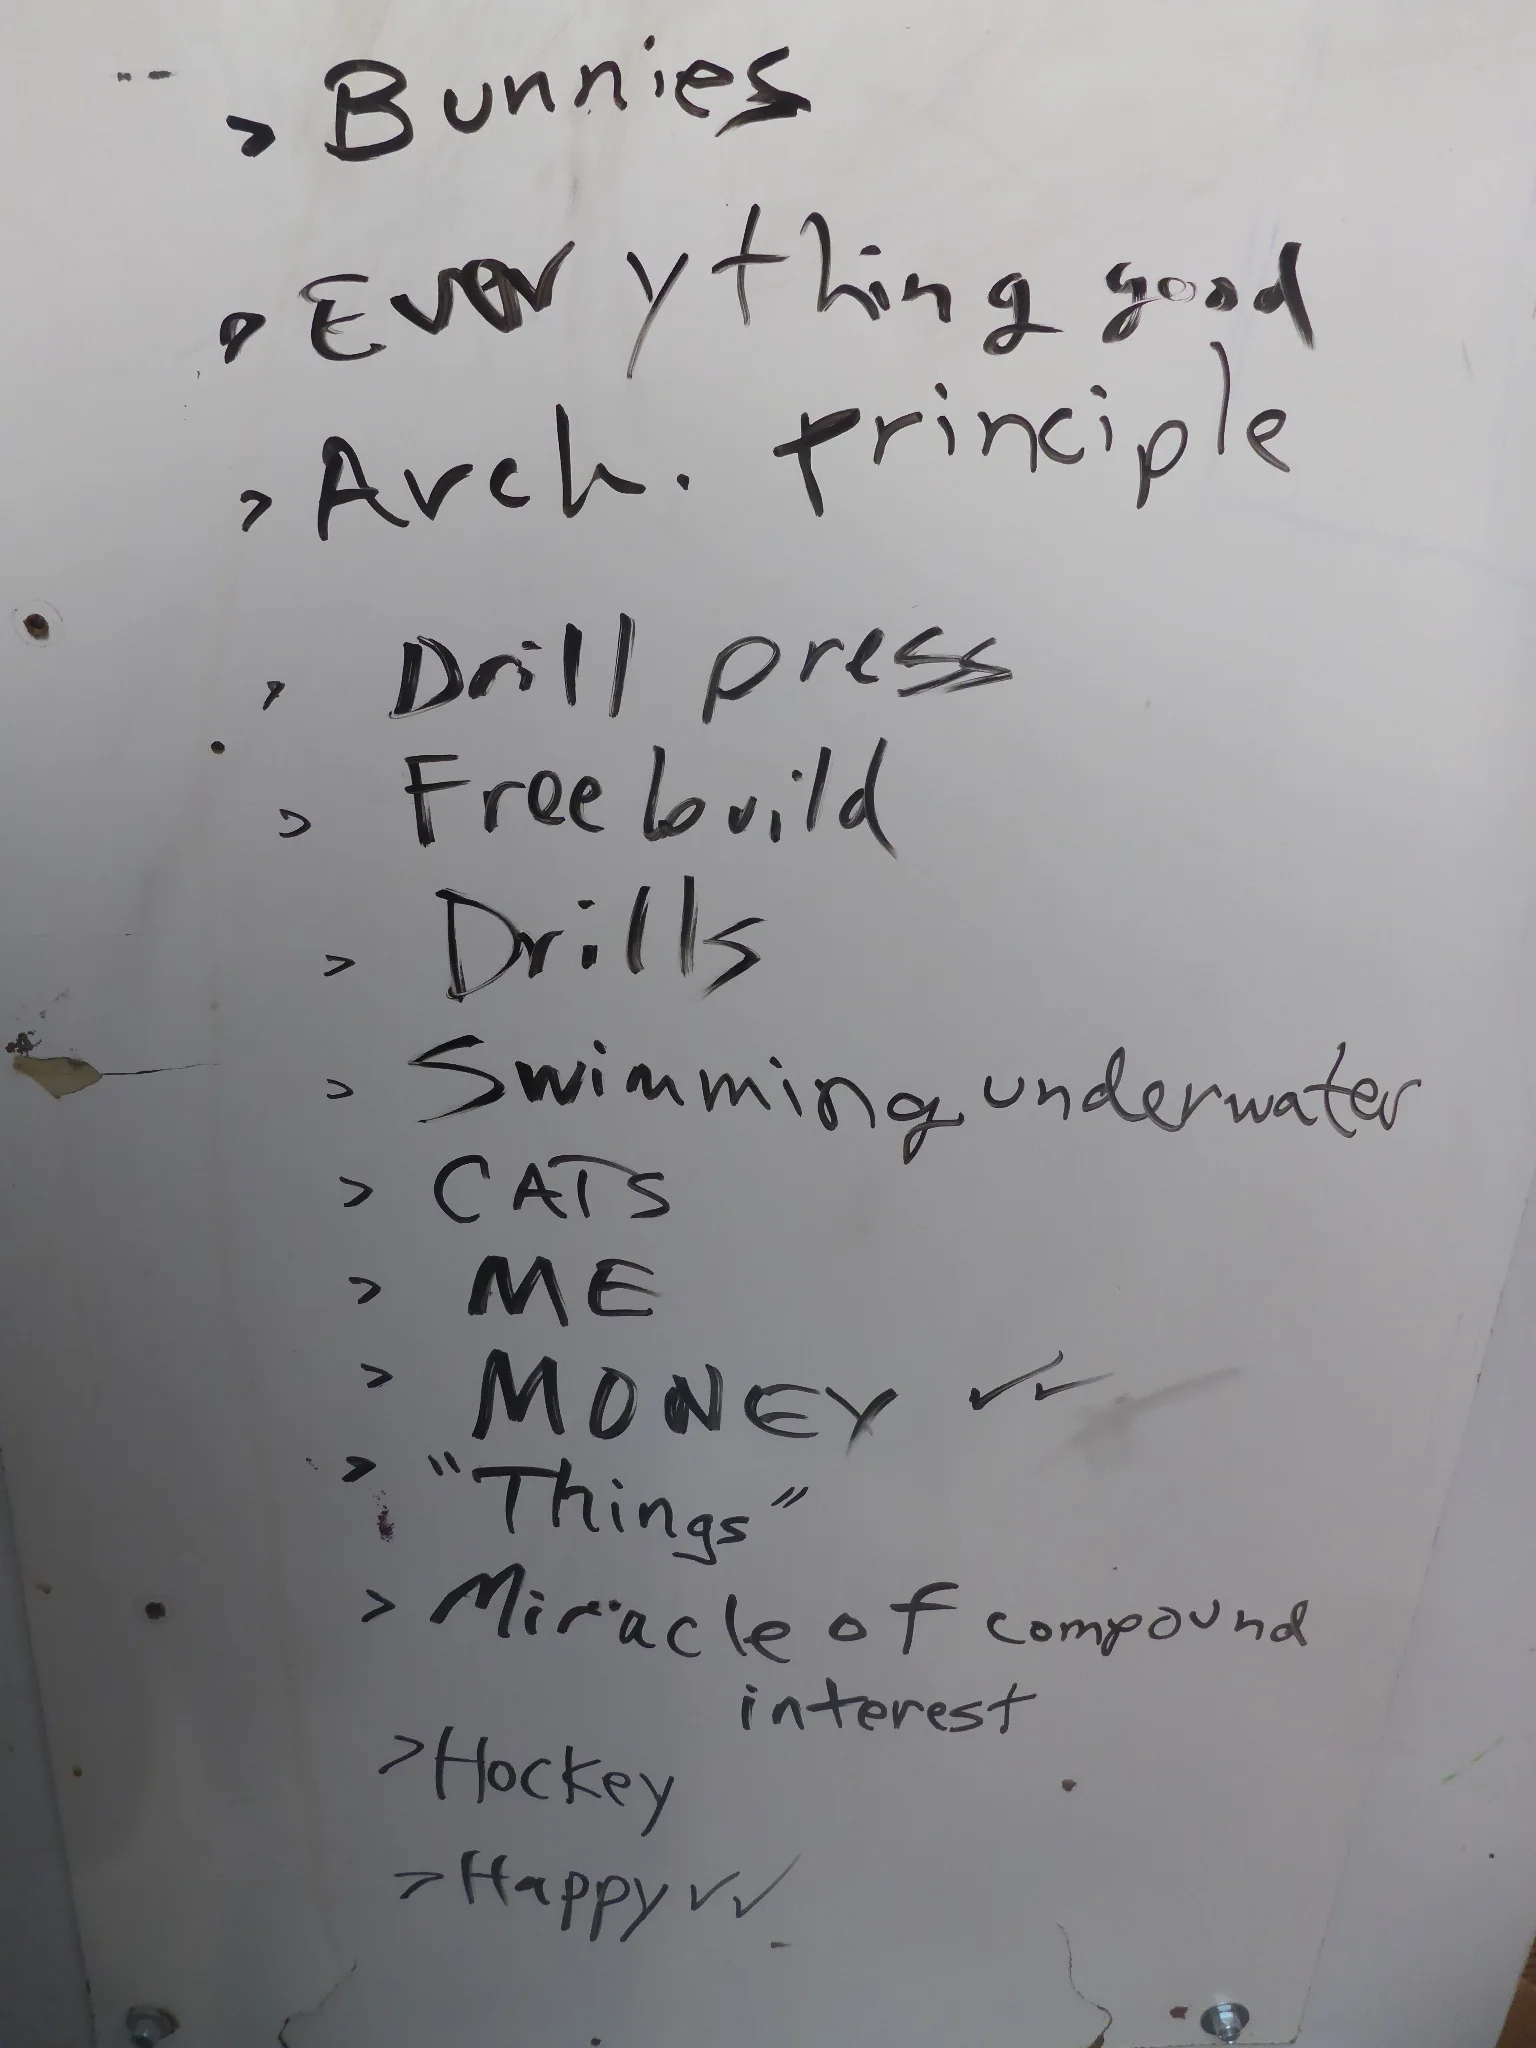 > Bunnies
> Everything good
> Arch. principle
> Drill press
> Free build
> Drills
> Swimming underwater
> CATS
> ME
> MONEY ✓✓
> "Things"
> Miracle of compound
interest
> Hockey
> Happy ✓✓